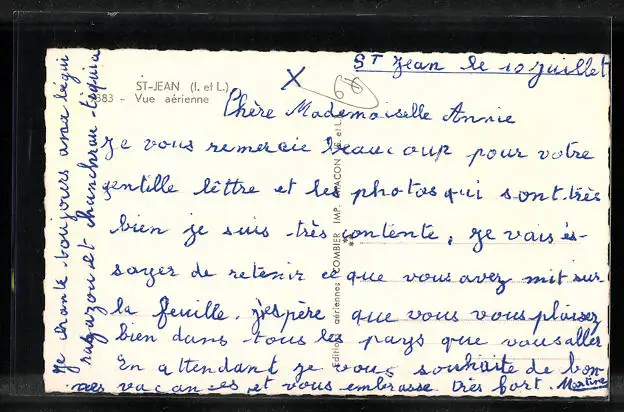 St Jean le 10 juillet
ST-JEAN (I. et L.)
883 - Vue aérienne
X
Chère Mademoiselle Annie
Je vous remercie beaucoup pour votre
gentille lêttre et les photos qui sont très
bien je suis très contente, je vais és-
sayer de retenir ce que vous avez mit sur
la feuille. j'éspère que vous vous plaisez
bien dans tous les pays que vous aller
En attendant je vous souhaite de bon-
nes vacances et vous embrasse très fort. Martine
Je chante toujours ama
et
Editions aériennes COMBIER IMP. MACON (S. et L.)